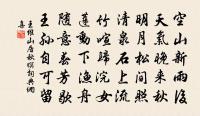 空山新雨後
天氣晚來秋
明月松間照
清泉石上流
竹喧歸浣女
蓮動下漁舟
隨意春芳歇
王孫自可留
王維山居秋暝詞典網